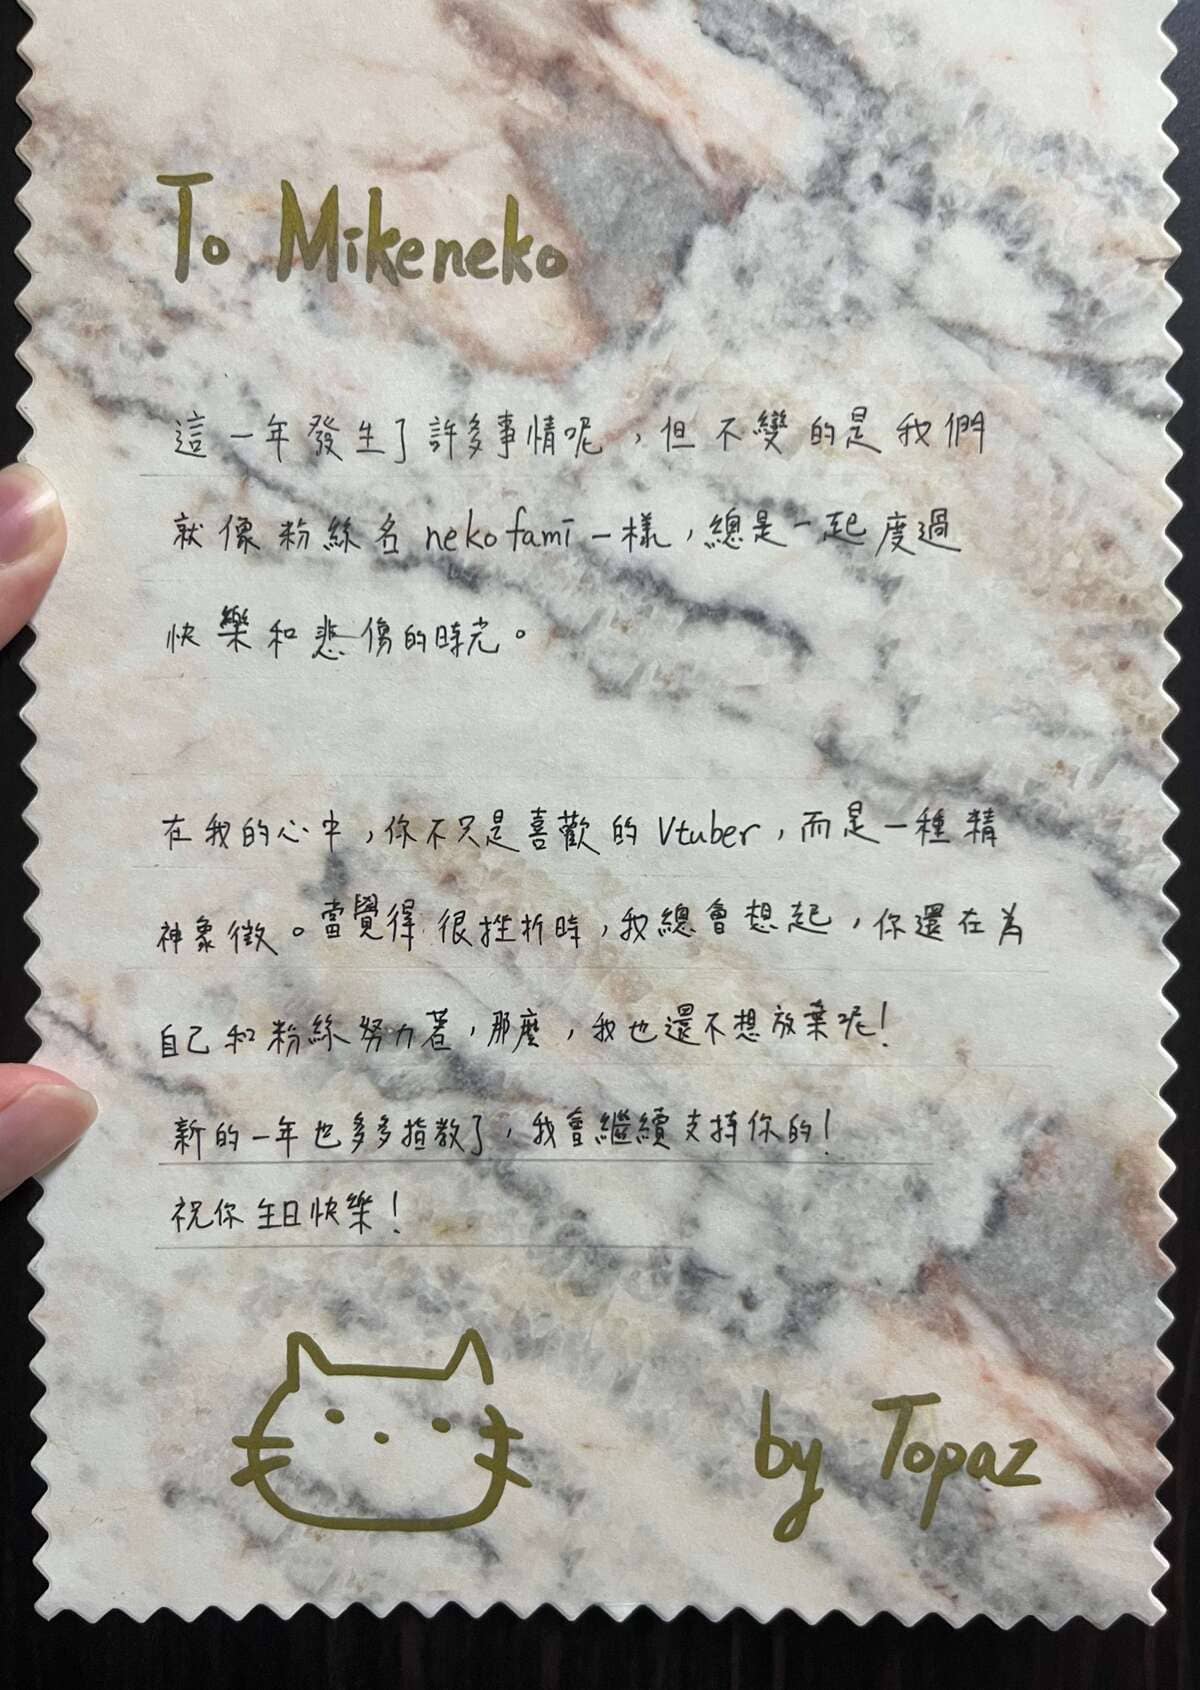 To Mikeneko
這一年發生了許多事情呢，但不變的是我們
就像粉絲名nekofami一樣，總是一起度過
快樂和悲傷的時光。
在我的心中，你不只是喜歡的Vtuber，而是一種精
神象徵。當覺得很挫折時，我總會想起，你還在為
自己和粉絲努力著，那麼，我也還不想放棄呢！
新的一年也多多指教了，我會繼續支持你的！
祝你生日快樂！
by Topaz